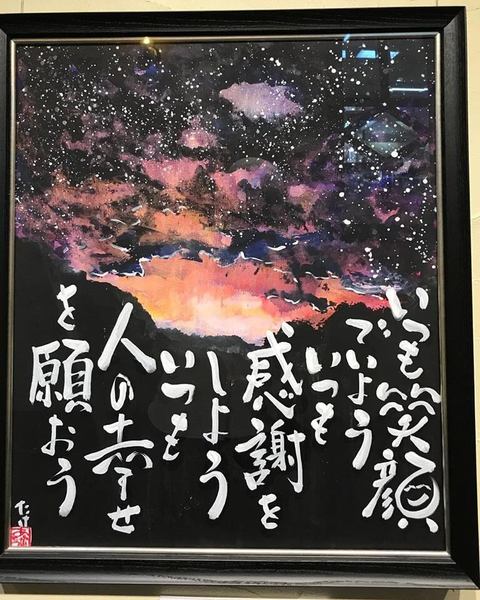 いつも笑顔
でいよう
いつも
感謝を
しよう
いつも
人の幸せ
を願おう
たけ